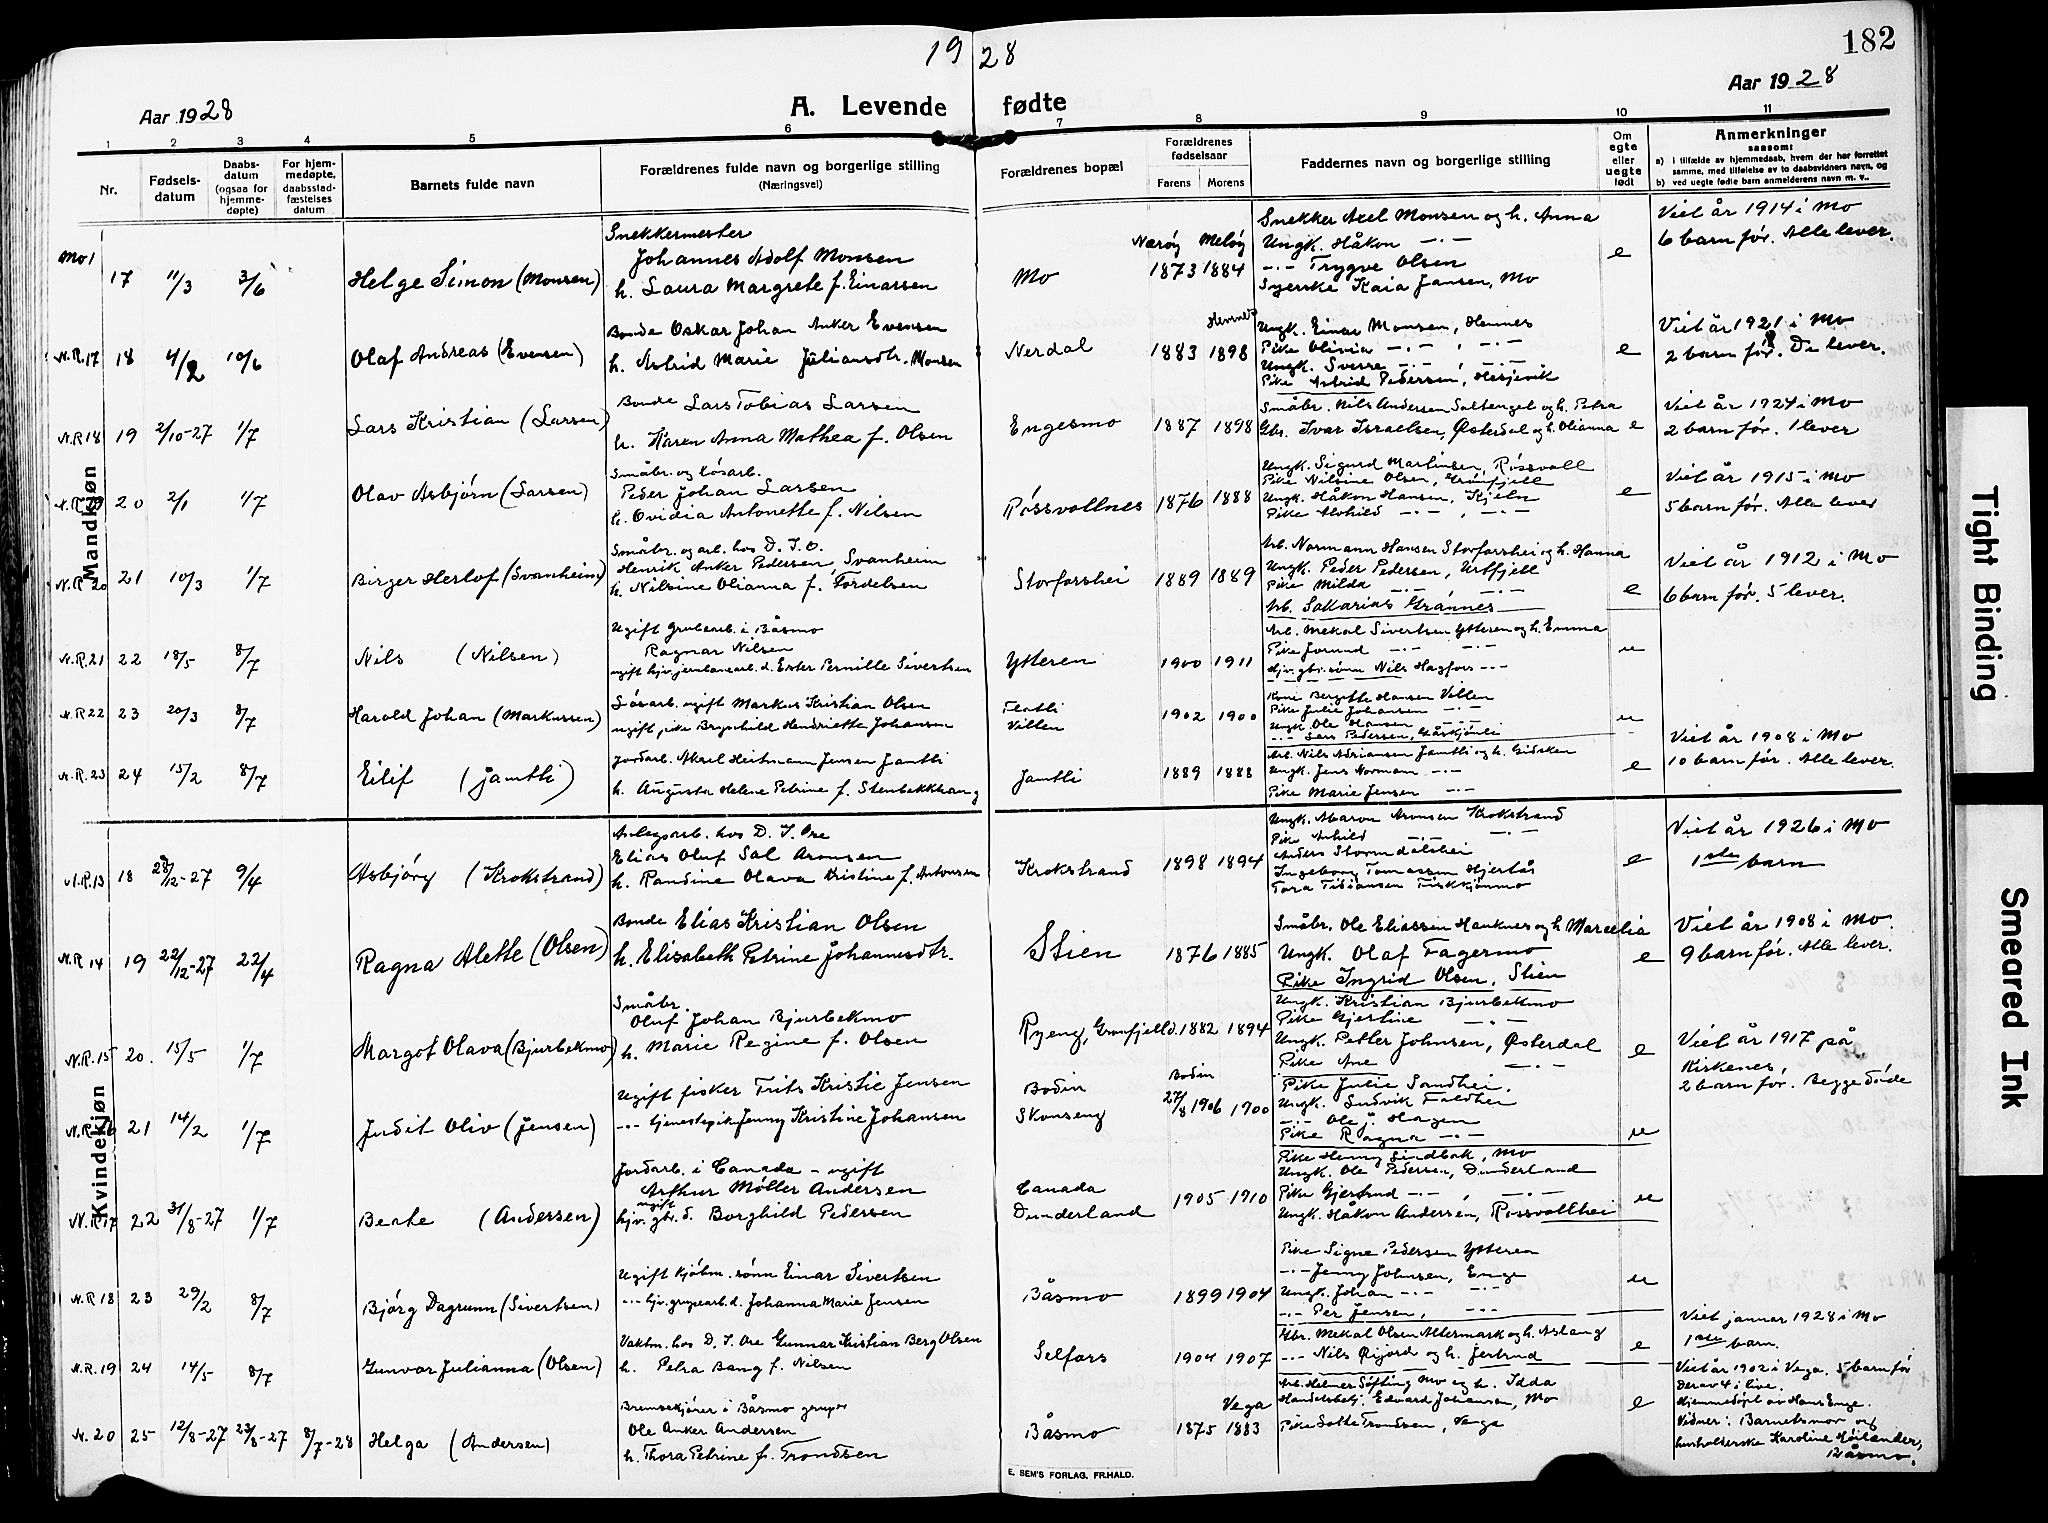 1928
182
Aar 1928
A. Levende fødte
Aar 1928
1 2 3 4 5 6 7 8 9 10 11
Nr.
Fødsels-
datum
Daabs-
datum
(ogsaa for
hjemme-
døpte)
For hjem-
medøpte,
daabsstad-
fæstelses
datum
Barnets fulde navn
Forældrenes fulde navn og borgerlige stilling
(Næringsvei)
Forældrenes bopæl
Forældrenes
fødselsaar
Farens Morens
Faddernes navn og borgerlige stilling
Om
egte
eller
uegte
født
Anmerkninger
saasom:
a) i tilfælde av hjemmedaab, hvem der har forrettet
samme, med tilføielse av to daabsvidners navn, og
b) ved uegte fødte barn anmelderens navn m. v..
Mandkjøn
Mo 1 17 11/3 3/6 Helge Simon (Monsen)
Snekkermester
Johannes Adolf Monsen
h. Laura Margrete f. Einarsen
Mo
Nærøy Meløy
1873 1884
Snekker Axel Monsen og h. Anna
Ungk. Håkon -"-
-"- Trygve Olsen
Syerske Kaia Jansen, Mo
e
Viet år 1914 i Mo
6 barn før. Alle lever.
N.R.17 18 4/2 10/6 Olaf Andreas (Evensen)
Bonde Oskar Johan Anker Evensen
h. Astrid Marie Juliansdtr. Monsen
Nerdal
Hemnes
1883 1898
Ungk. Einar Monsen, Hemnes
Pike Olivia -"- , -"-
Ungk. Sverre -"- -"-
Pike Astrid Pedersen, Hesjevik
e
Viet år 1921 i Mo
2 barn før. De lever.
N.R18 19 2/10-27 1/7 Lars Kristian (Larsen)
Bonde Lars Tobias Larsen
h. Karen Anna Mathea f. Olsen
Engesmo
1887 1898
Småbr. Nils Andersen Saltenget og h. Petra
Gbr. Ivar Israelsen, Østerdal og h. Olianna
e
Viet år 1924 i Mo
2 barn før. 1 lever
N.R.19 20 2/1 1/7 Olav Asbjørn (Larsen)
Småbr. og løsarb.
Peder Johan Larsen
h. Ovidia Antonette f. Nilsen
Røssvollnes
1876 1888
Ungk. Sigurd Martinsen, Røssvoll
Pike Nilsine Olsen, Grønfjell
Ungk. Håkon Hansen,
Pike Alvhild -"- , -"-
e
Viet år 1915 i Mo
5 barn før. Alle lever
N.R 20 21 10/3 1/7 Birger Herlof (Svanheim)
Småbr. og arb. hos D. I. O.
Henrik Anker Pedersen, Svanheim
h. Nilsine Olianna f. Fordelsen
Storforshei
1889 1889
Arb. Normann Hansen Storforshei og h. Hanna
Ungk. Peder Pedersen, Urtfjell
Pike Milda -"- -"-
Arb. Sakarias Grannes
e
Viet år 1912 i Mo
6 barn før. 5 lever.
N.R.21 22 18/5 8/7 Nils (Nilsen)
Ugift grubearb. i Båsmo
Ragnar Nilsen
ugift hjv. jernbanearb. d. Ester Pernille Sivertsen
Ytteren
1900 1911
Arb. Mekal Sivertsen Ytteren og h. Emma
Pike Jorund -"- -"-
Hjv. gbr. sønn Nils Hagfors -"-
u
N.R22 23 20/3 8/7 Harald Johan (Markussen)
Løsarb. ugift Markus Kristian Olsen
ugift pike Brynhild Hendriette Johansen
Flatli
Villen
1902 1900
Kone Bergitte Hansen Villen
Pike Julie Johansen -"-
Ungk. Ole Hansen -"-
-"- Lars Pedersen,
u
N.R.23 24 15/2 8/7 Eilif (Jamtli)
Jordarb. Aksel Heitmann Jensen Jamtli
h. Augusta Helene Petrine f. Stenbekkhaug
Jamtli
1889 1888
Arb. Nils Adriansen Jamtli og h. Gidsken
Ungk. Jens Normann -"-
Pike Marie Jensen -"-
e
Viet år 1908 i Mo
10 barn før. Alle lever.
Kvindekjøn
N.R.13 18 28/12-27 9/4 Asbjørg (Krokstrand)
Anlegsarb. hos D. I. Ore
Elias Oluf Sal Aronsen
h. Randine Olava Kristine f. Antonsen
Krokstrand
1898 1894
Ungk. Maron Aronsen Krokstrand
Pike Arhild -"- -"-
Anders Stormdalshei
Ingeborg Tomassen Hjertås
Tora Tibiansen Fiskkjønmo
e
Viet år 1926 i Mo
1ste barn
N.R 14 19 22/12-27 22/4 Ragna Alette (Olsen)
Bonde Elias Kristian Olsen
h. Elisabeth Petrine Johannesdtr.
Stien
1876 1885
Småbr. Ole Eliassen Hauknes og h. Marcelia
Ungk. Olaf Fagermo
Pike Ingrid Olsen, Stien
e
Viet år 1908 i Mo.
9 barn før. Alle lever.
N.R.15 20. 15/5 1/7 Margot Olava (Bjurbekmo)
Småbr.
Oluf Johan Bjurbekmo
h. Marie Regine f. Olsen
Ryeng, Grønfjelld.
1882 1894
Ungk. Kristian Bjurbekmo
Pike Gjertine -"-
Ungk. Petter Johnsen, Østerdal
Pike Ane -"-
e
Viet år 1917 på
Kirkenes,
2 barn før. Begge døde
N.R.16 21 14/2 1/7 Judit Oliv (Jensen)
Ugift fisker Frits Kristie Jensen
-"- tjenestepik Jenny Kristine Johansen
Bodin
Skonseng
Bodin
27/8 1906 1900
Pike Julie Sandhei.
Ungk. Ludvik Faldhei
-"- Ole J. Hagen
Pike Ragna -"-
u
N.R17 22 31/8-27 1/7 Bente (Andersen)
Jordarb. i Canada - ugift
Arthur Møller Andersen
ugift
hjv. gbr. d. Borghild Pedersen
Canada
Dunderland
1905 1910
Pike Henny Lindbak, Mo
Ungk. Ole Pedersen, Dunderland
Pike Gjertrud -"- , -"-
Ungk. Håkon Andersen, Røssvollhei
u
N.R 18 23 29/2 8/7 Bjørg Dagrunn (Sivertsen)
Ugift kjøbm. sønn Einar Sivertsen
-"- hjv. grubearb. d. Johanna Marie Jensen
Båsmo
1899 1904
Pike Signe Pedersen Ytteren
-"- Jenny Johnsen, Enge
Ungk. Johan -"- -"-
-"- Per Jensen, -"-
u
N.R.19 24 14/5 8/7 Gunvor Julianna (Olsen)
Vaktm. hos D. I. Ore Gunnar Kristian Berg Olsen
h. Petra Bang f. Nilsen
Selfors
1904 1907
Gbr. Mekal Olsen Altermark og h. Aslaug
-"- Nils Øijord og h. Jertrud
e
Viet januar 1928 i Mo
1ste barn.
N. 20 25 12/8-27 23/8-27 8/7-28 Helga (Andersen)
Bremsekjører i Båsmo gruber
Ole Anker Andersen
h. Thora Petrine f. Trondsen
Båsmo
Vega
1875 1883
Arb. Helmer Søfting Mo og h. Idda
Handelsbetj. Edvard Johansen, Mo
Pike Lotte Trondsen, Vega
e
Viet år 1902 i Vega. 5 barn før
Derav 4 i live.
Hjemmedøpt av Hans Enge.
Vidner: Barnets mor og
husholderske Karoline Høilander,
Båsmo.
E. SEM'S FORLAG, FR.HALD.
Tight Binding
Smeared Ink